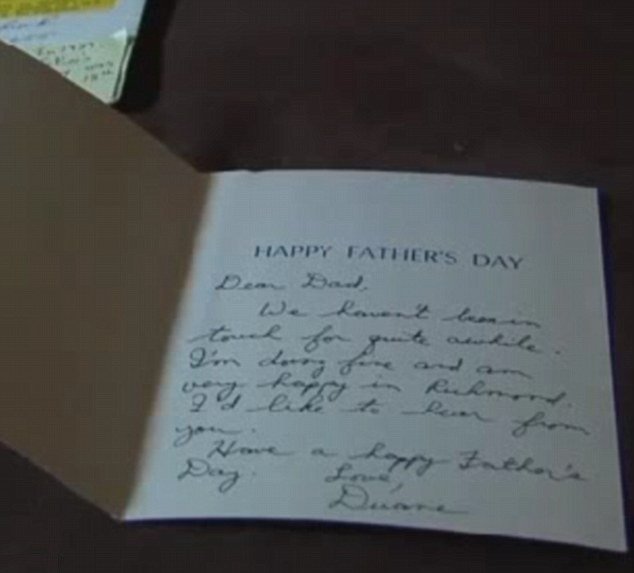 HAPPY FATHER'S DAY
Dear Dad,
We haven't been in
touch for quite awhile.
I'm doing fine and am
very happy in Richmond.
I'd like to hear from
you.
Have a happy Father's
Day. Love,
Duane